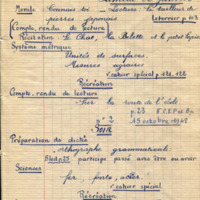 Morale Connais-toi Lecture : Les tailleurs de
pierres japonais
Compte-rendu de lecture
Récitation Le Chat, la Belette et le petit lapin
Système métrique
Unités de surfaces.
Mesures agraires
Cahier spécial p.
Récréation
Compte rendu de lecture
Sur la route de l'école
p. 23
15 octobre
N° 2
SOIR
Préparation de dictée
Orthographe grammaticale
participe passé avec être ou avoir
Sciences
fer, fonte, acier
Cahier spécial
Récréation